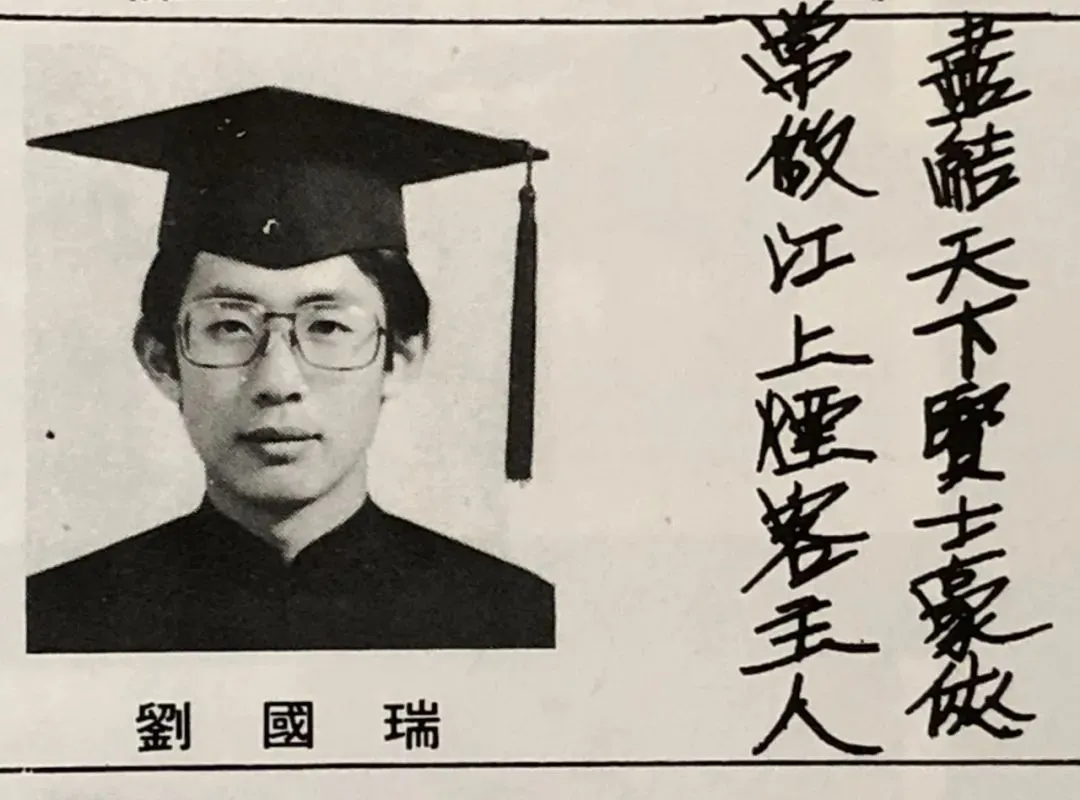 盡結天下賢士豪俠
常做江上煙客主人
劉國瑞